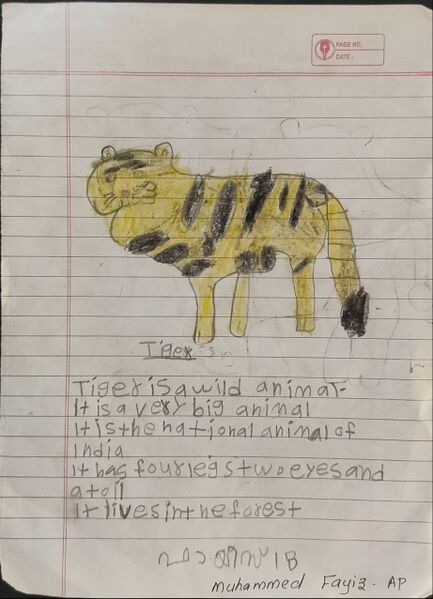 PAGE NO.
DATE :
Tiger
Tiger is a wild animal.
It is a very big animal
It is the national animal of
India
It has four legs two eyes and
a toil
It lives in the forest
ഫായിസ് 1B
Muhammed Fayiz. AP